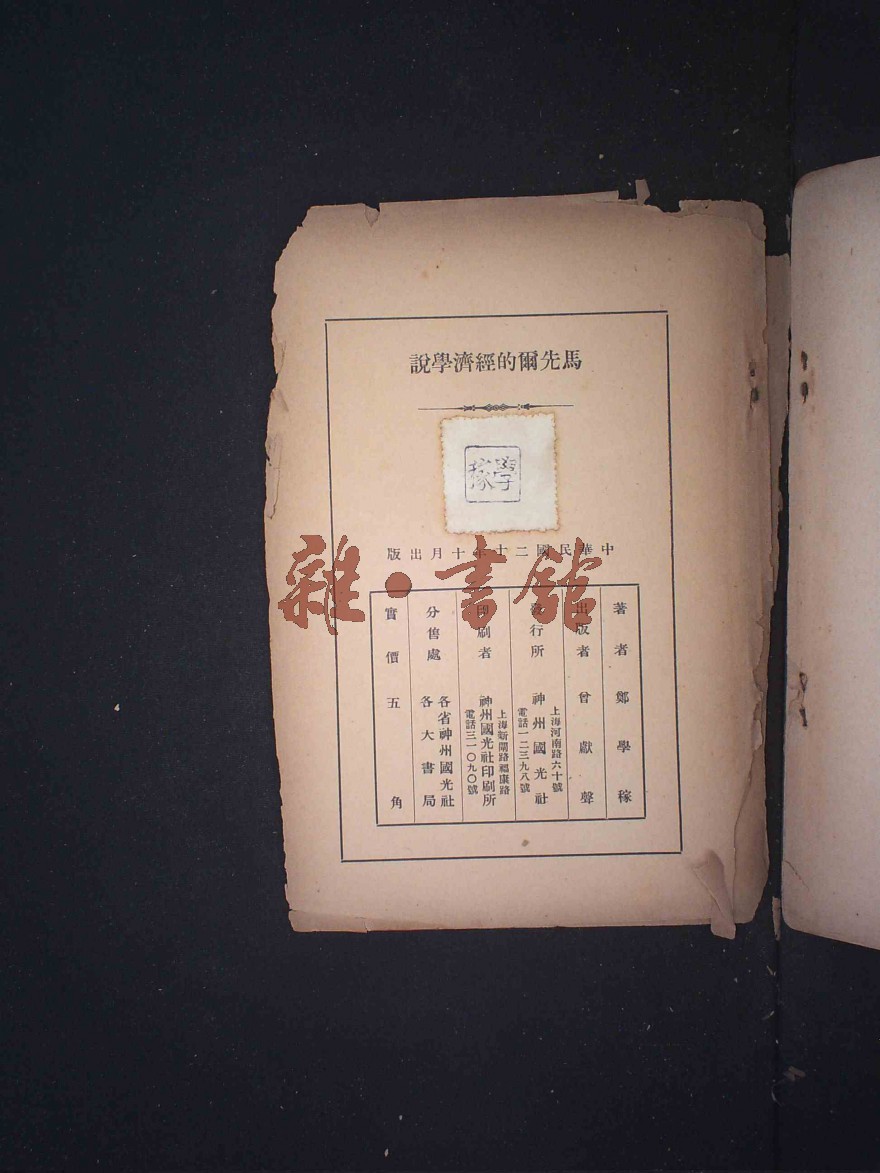 馬先爾的經濟學說
學稼
中華民國二十年十月出版
著者 鄭學稼
出版者 曾獻聲
發行所 神州國光社
上海河南路六十號
電話一二三九八號
印刷者 神州國光社印刷所
上海新閘路福康路
電話三一〇九〇號
分售處 各省神州國光社
各大書局
實價五角
雜·書館